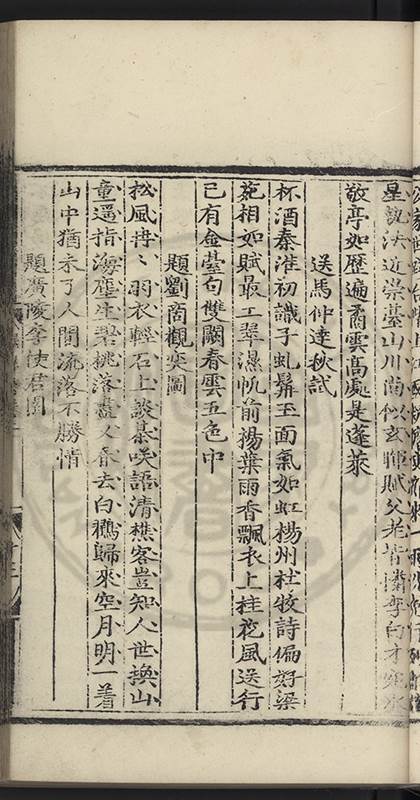 星說決近崇臺山川尚似玄暉賦父老皆懷李白才寒水
敬亭如歷遍矞雲高處是蓬萊
送馬仲達秋試
杯酒秦淮初識子虬髯玉面氣如虹楊州杜牧詩偏好梁
苑相如賦最工翠濕帆前揚葉雨香飄衣上桂花風送行
已有金臺句雙闕春雲五色中
題劉商觀奕圖
松風冉丶羽衣輕石上談棊咲語清樵客豈知人世換山
童遥指海塵生碧桃落盡又春去白鶴歸來空月明一着
山中猶未了人間流落不勝情
題廣陵李使君園